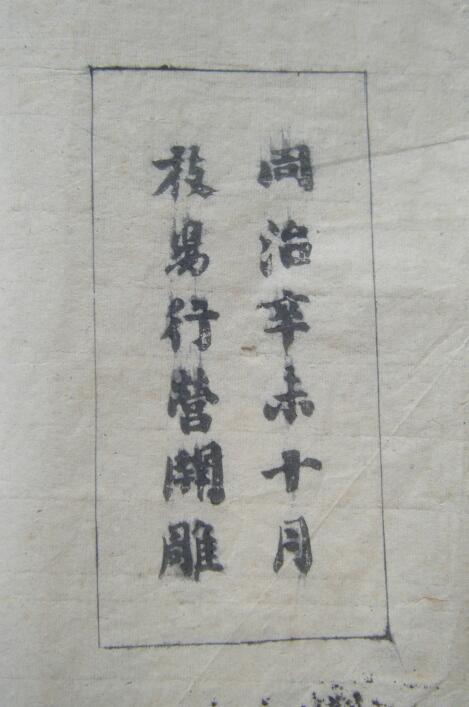 同治辛未十月
枝昜行營開雕